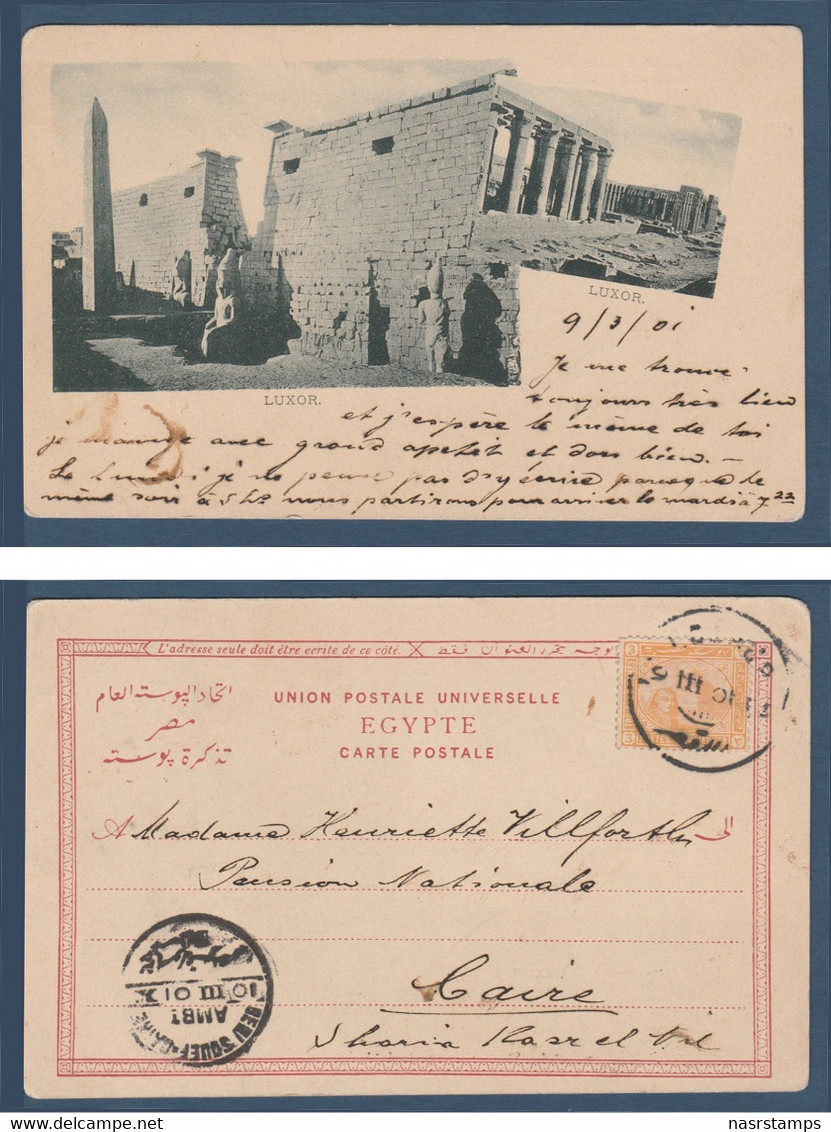 LUXOR.
LUXOR.
9/3/01
Je me trouve
toujours très bien
et j'espère le même de toi
je mange avec grand apetit et dors bien. –
Le Lundi je ne peux pas d'y écrire parceque le
même soir à 5 h nous partirons pour arriver le mardi à 7 22
L'adresse seule doit être ecrite de ce côté.
فقط
اتحاد البوسته العام
UNION POSTALE UNIVERSELLE
مصر
EGYPTE
تذكرة بوسته
CARTE POSTALE
10 III 01
A Madame Henriette Villforth الى
Pension Nationale
Caire
Sharia Kasr el Nil
10 III 01
AMBT
BENI SOUEF-CAIRE
www.delcampe.net
nasrstamps